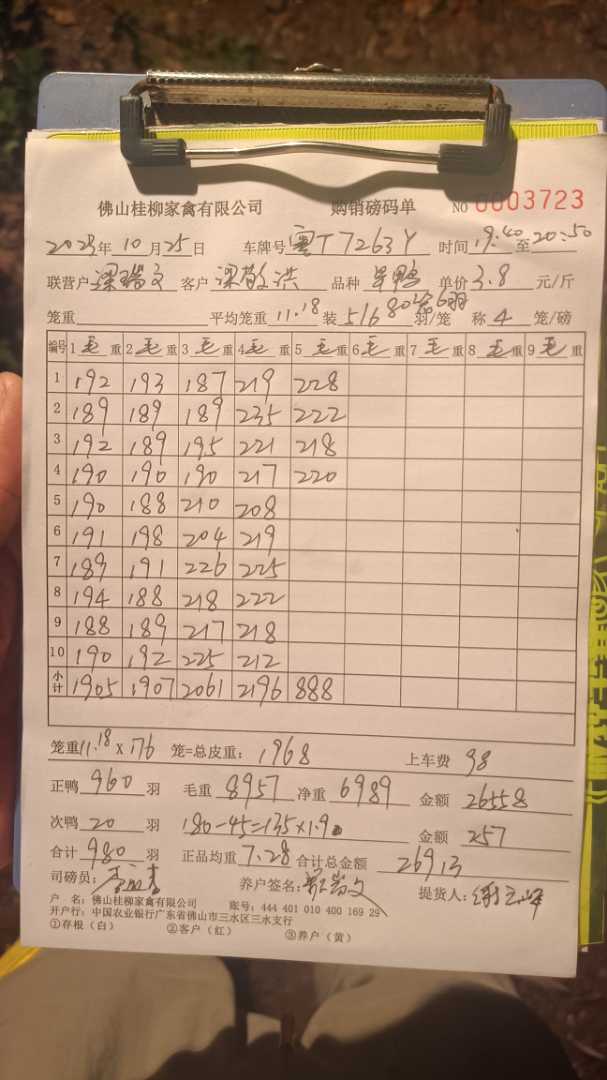 佛山桂柳家禽有限公司 购销磅码单 NO 0003723
2025年10月25日 车牌号 粤T7263Y 时间 19:40至20:50
联营户 梁瑞文 客户 梁敬洪 品种 旱鸭 单价 3.8 元/斤
笼重 平均笼重 11.18 装 5/6 羽/笼 称 4 笼/磅
编号 1毛重 2毛重 3毛重 4毛重 5毛重 6毛重 7毛重 8毛重 9毛重
1 192 193 187 219 228
2 189 189 189 235 222
3 192 189 195 221 218
4 190 190 190 217 220
5 190 188 210 208
6 191 198 204 219
7 189 191 226 225
8 194 188 218 222
9 188 189 217 218
10 190 192 225 212
小计 1905 1907 2061 2196 888
笼重 11.18 x 176 笼=总皮重: 1968 上车费 98
正鸭 960 羽 毛重 8957 净重 6989 金额 26558
次鸭 20 羽 180-45=135x1.9 金额 257
合计 980 羽 正品均重 7.28 合计总金额 26913
司磅员: 养户签名: 提货人:
户 名: 佛山桂柳家禽有限公司 账号: 444 401 010 400 169 29
开户行: 中国农业银行广东省佛山市三水区三水支行
①存根(白) ②客户(红) ③养户(黄)